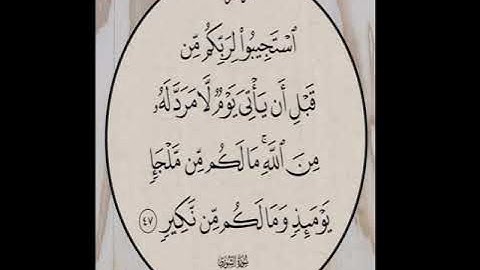 ٱسْتَجِيبُوا۟ لِرَبِّكُم مِّن
قَبْلِ أَن يَأْتِىَ يَوْمٌ لَّا مَرَدَّ لَهُۥ
مِنَ ٱللَّهِ ۚ مَا لَكُم مِّن مَّلْجَإٍ
يَوْمَئِذٍ وَمَا لَكُم مِّن نَّكِيرٍ ٤٧
سورة الشورى